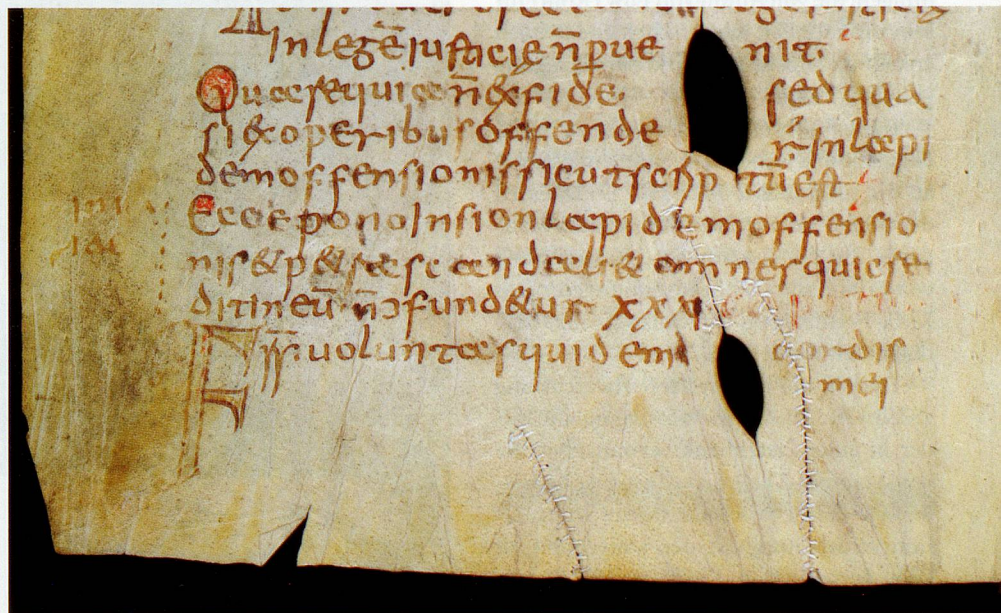 in legē iusticię n̄ ꝑue nit
Quare quia n̄ ex fide sed qua
si ex operibus offende r̄ in lapi
dem offensionis sicut scrip tū est
Ecce pono in sion lapidem offensio
nis & p&ra scandali & omnes qui cre
dit in eū n̄ confund&ur xxx
FR̄. uoluntas quidem cordis
mei